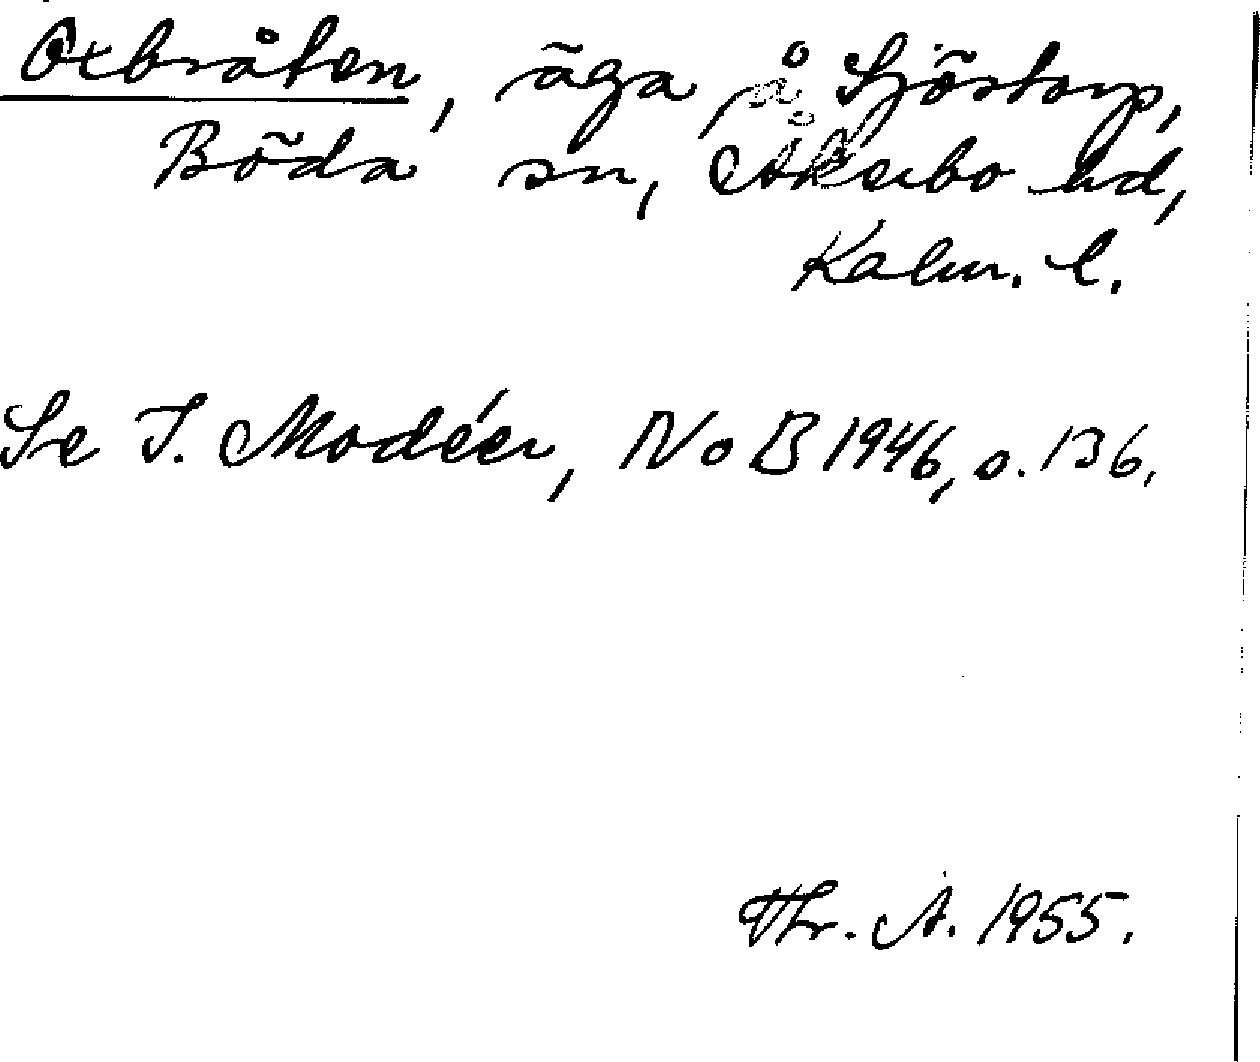 Oxbråten, äga å Sjöstorp,
Böda sn, Åkerbo hd,
Kalm. l.
Se I. Modéer, NoB 1946, s. 136.
Thr. A. 1955.